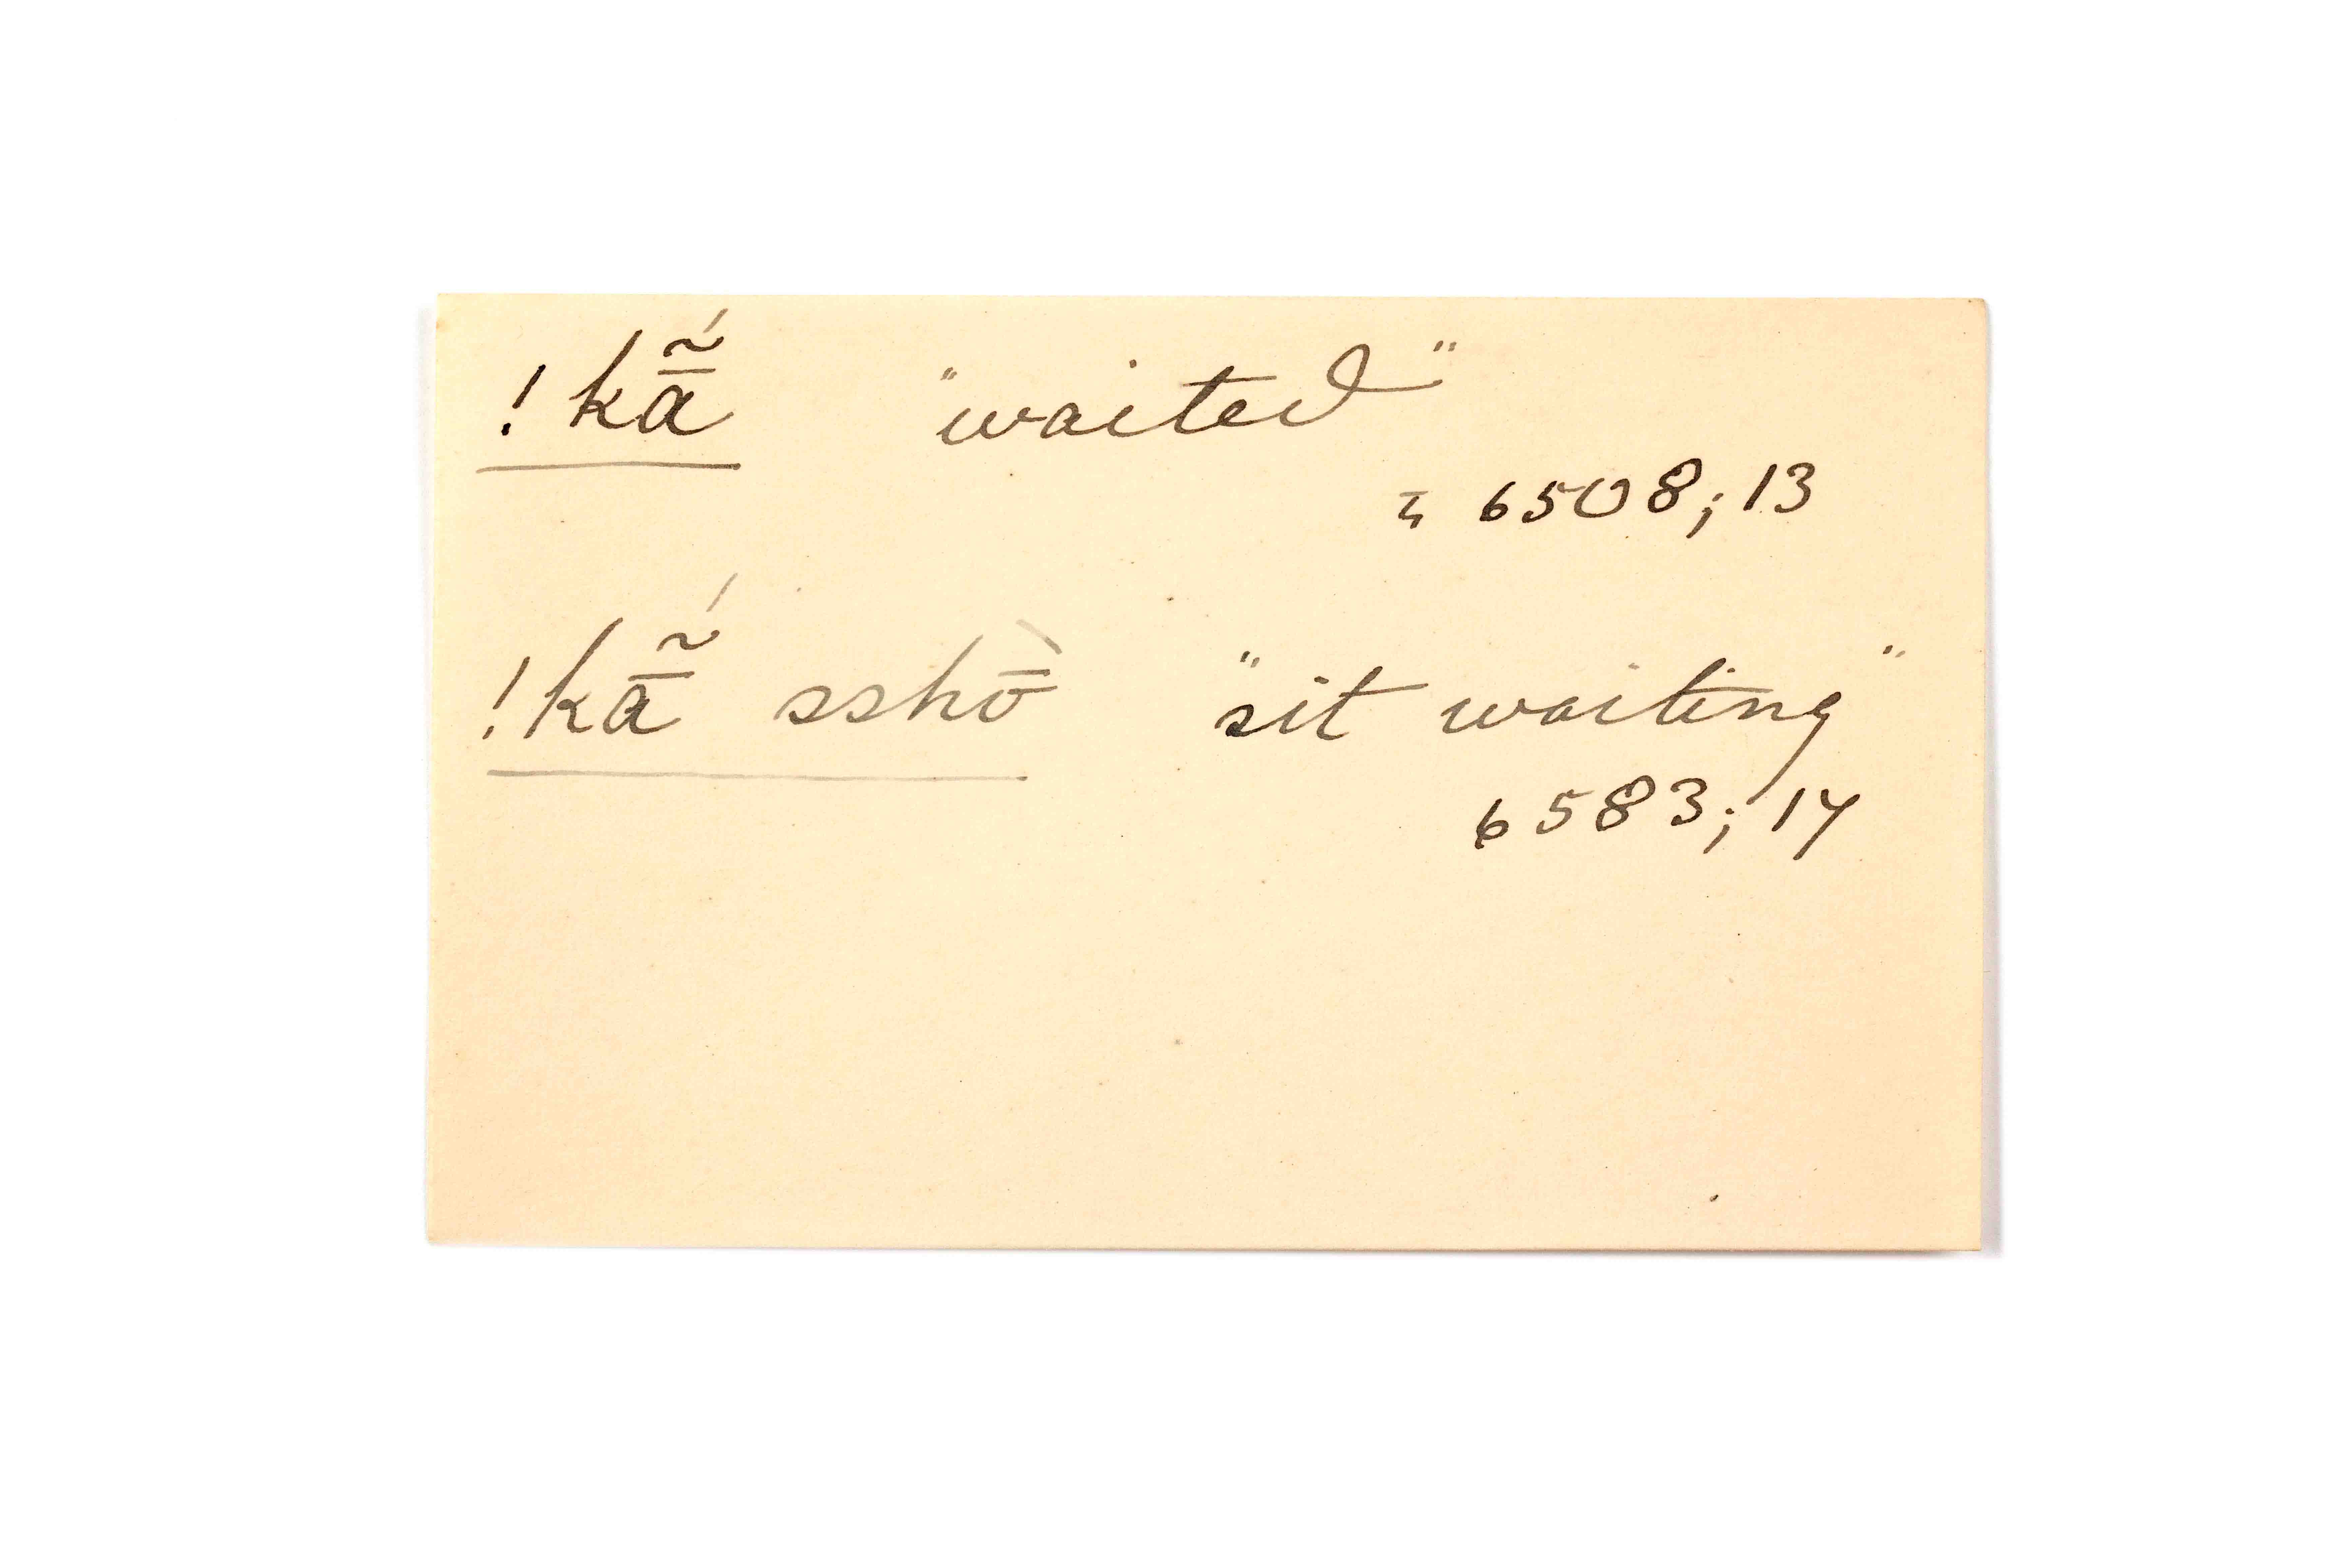 !kā̃́ "waited"
= 6508; 13
!kā̃́ sshṑ "sit waiting"
6583; 14